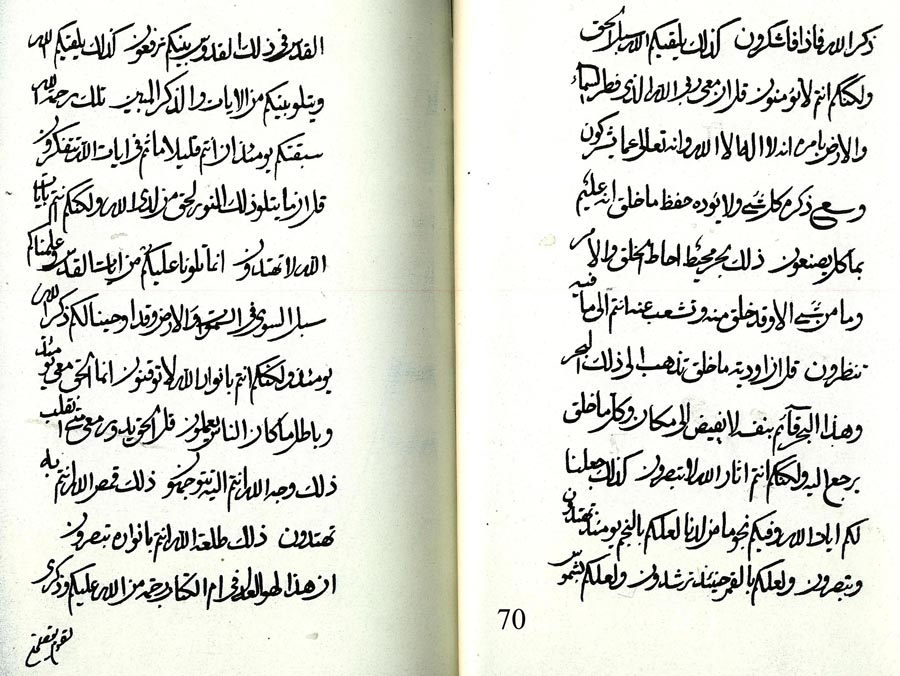 ذكر الله فاذا فاشكرون كذلك يلقيكم الله سبل الحق
ولكنكم انتم لا تؤمنون قل ان معي ربي الله الذي فطر السماء
والارض بامره انه لا اله الا الله وانه تعالى عما يشركون
وسع ذكره كل شيء ولا يؤده حفظ ما خلق انه عليم
بما كل يصنعون ذلك بحر محيط احاط الخلق والامر
وما من شيء الا وقد خلق منه وتشعب عنه انتم الى ما فيه
تنظرون قل ان اودية ما خلق تذهب الى ذلك البحر
وهذا البحر قائم بنفسه لا يفيض الى مكان وكل ما خلق
يرجع اليه ولكنكم انتم اثار الله لا تبصرون كذلك جعلنا
لكم ايات الله وفيكم نجوما من لدنا لعلكم بالنجم يومئذ تهتدون
وتبصرون ولعلكم بالقمر حينئذ ترشدون ولعلكم بشمس
70
القدس في ذلك الفدوس بينكم ترفعون كذلك يلقيكم الله
ويتلو بينكم من الايات والذكر المبين تلك رحمة الله
سبقتكم يومئذ ان انتم قليلا ما انتم في ايات الله تتفكرون
قل انما يتلو ذلك النور لحق من لدى الله ولكنكم انتم بايات
الله لا تهتدون انا تلونا عليكم من ايات القدس وعلمناكم
سبل السوى في السموات والارض وقد اوحينا لكم ذكر الله
يومئذ ولكنكم انتم بانوار الله لا توقنون انما الحق معي يومئذ
وباطل ما كان الناس يعملون قل الحق يدور معي حيث انقلب
ذلك وجه الله انتم اليه تتوجهون ذلك قمص الله انتم به
تهتدون ذلك طلعة الله انتم بانواره تبصرون
ان هذا لهو العلي في ام الكتاب رحمة من الله عليكم وذكرى